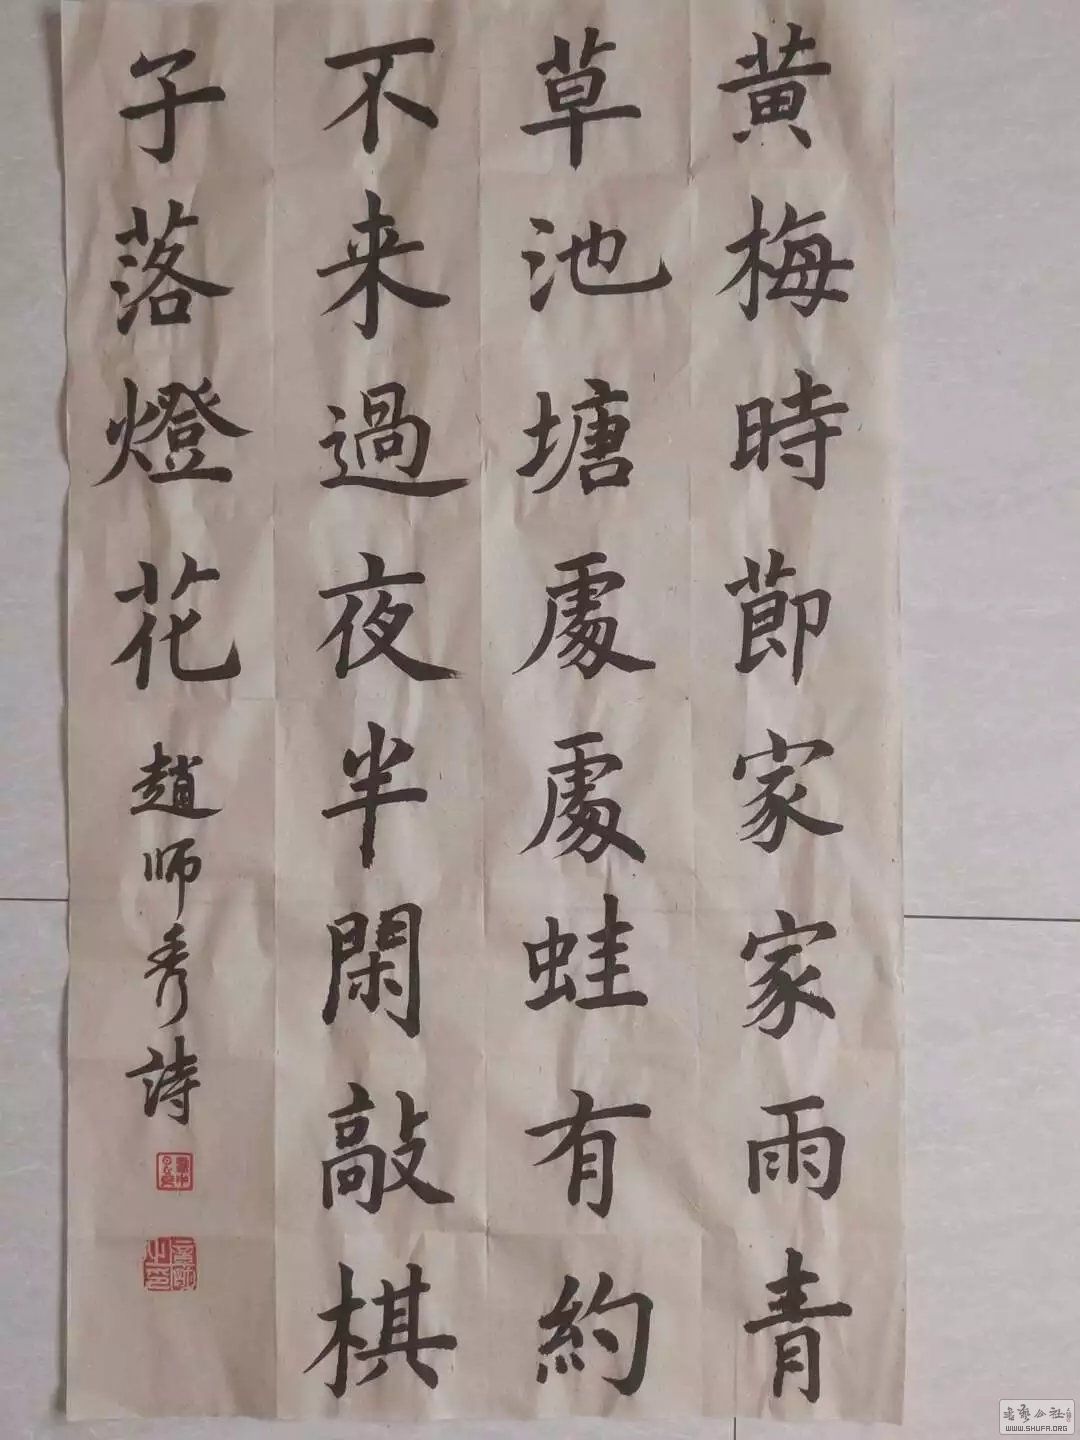 黄梅時節家家雨青
草池塘處處蛙有約
不来過夜半閑敲棋
子落燈花
趙师秀詩
WWW.SHUFA.ORG